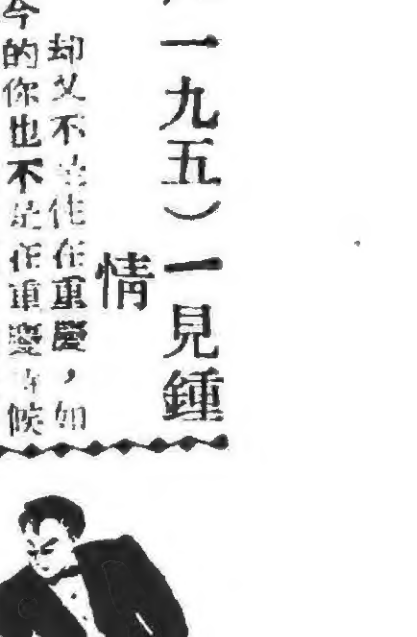 一九五）一見鍾
情
却又不是住在重慶，如
今的你也不是在重慶時候